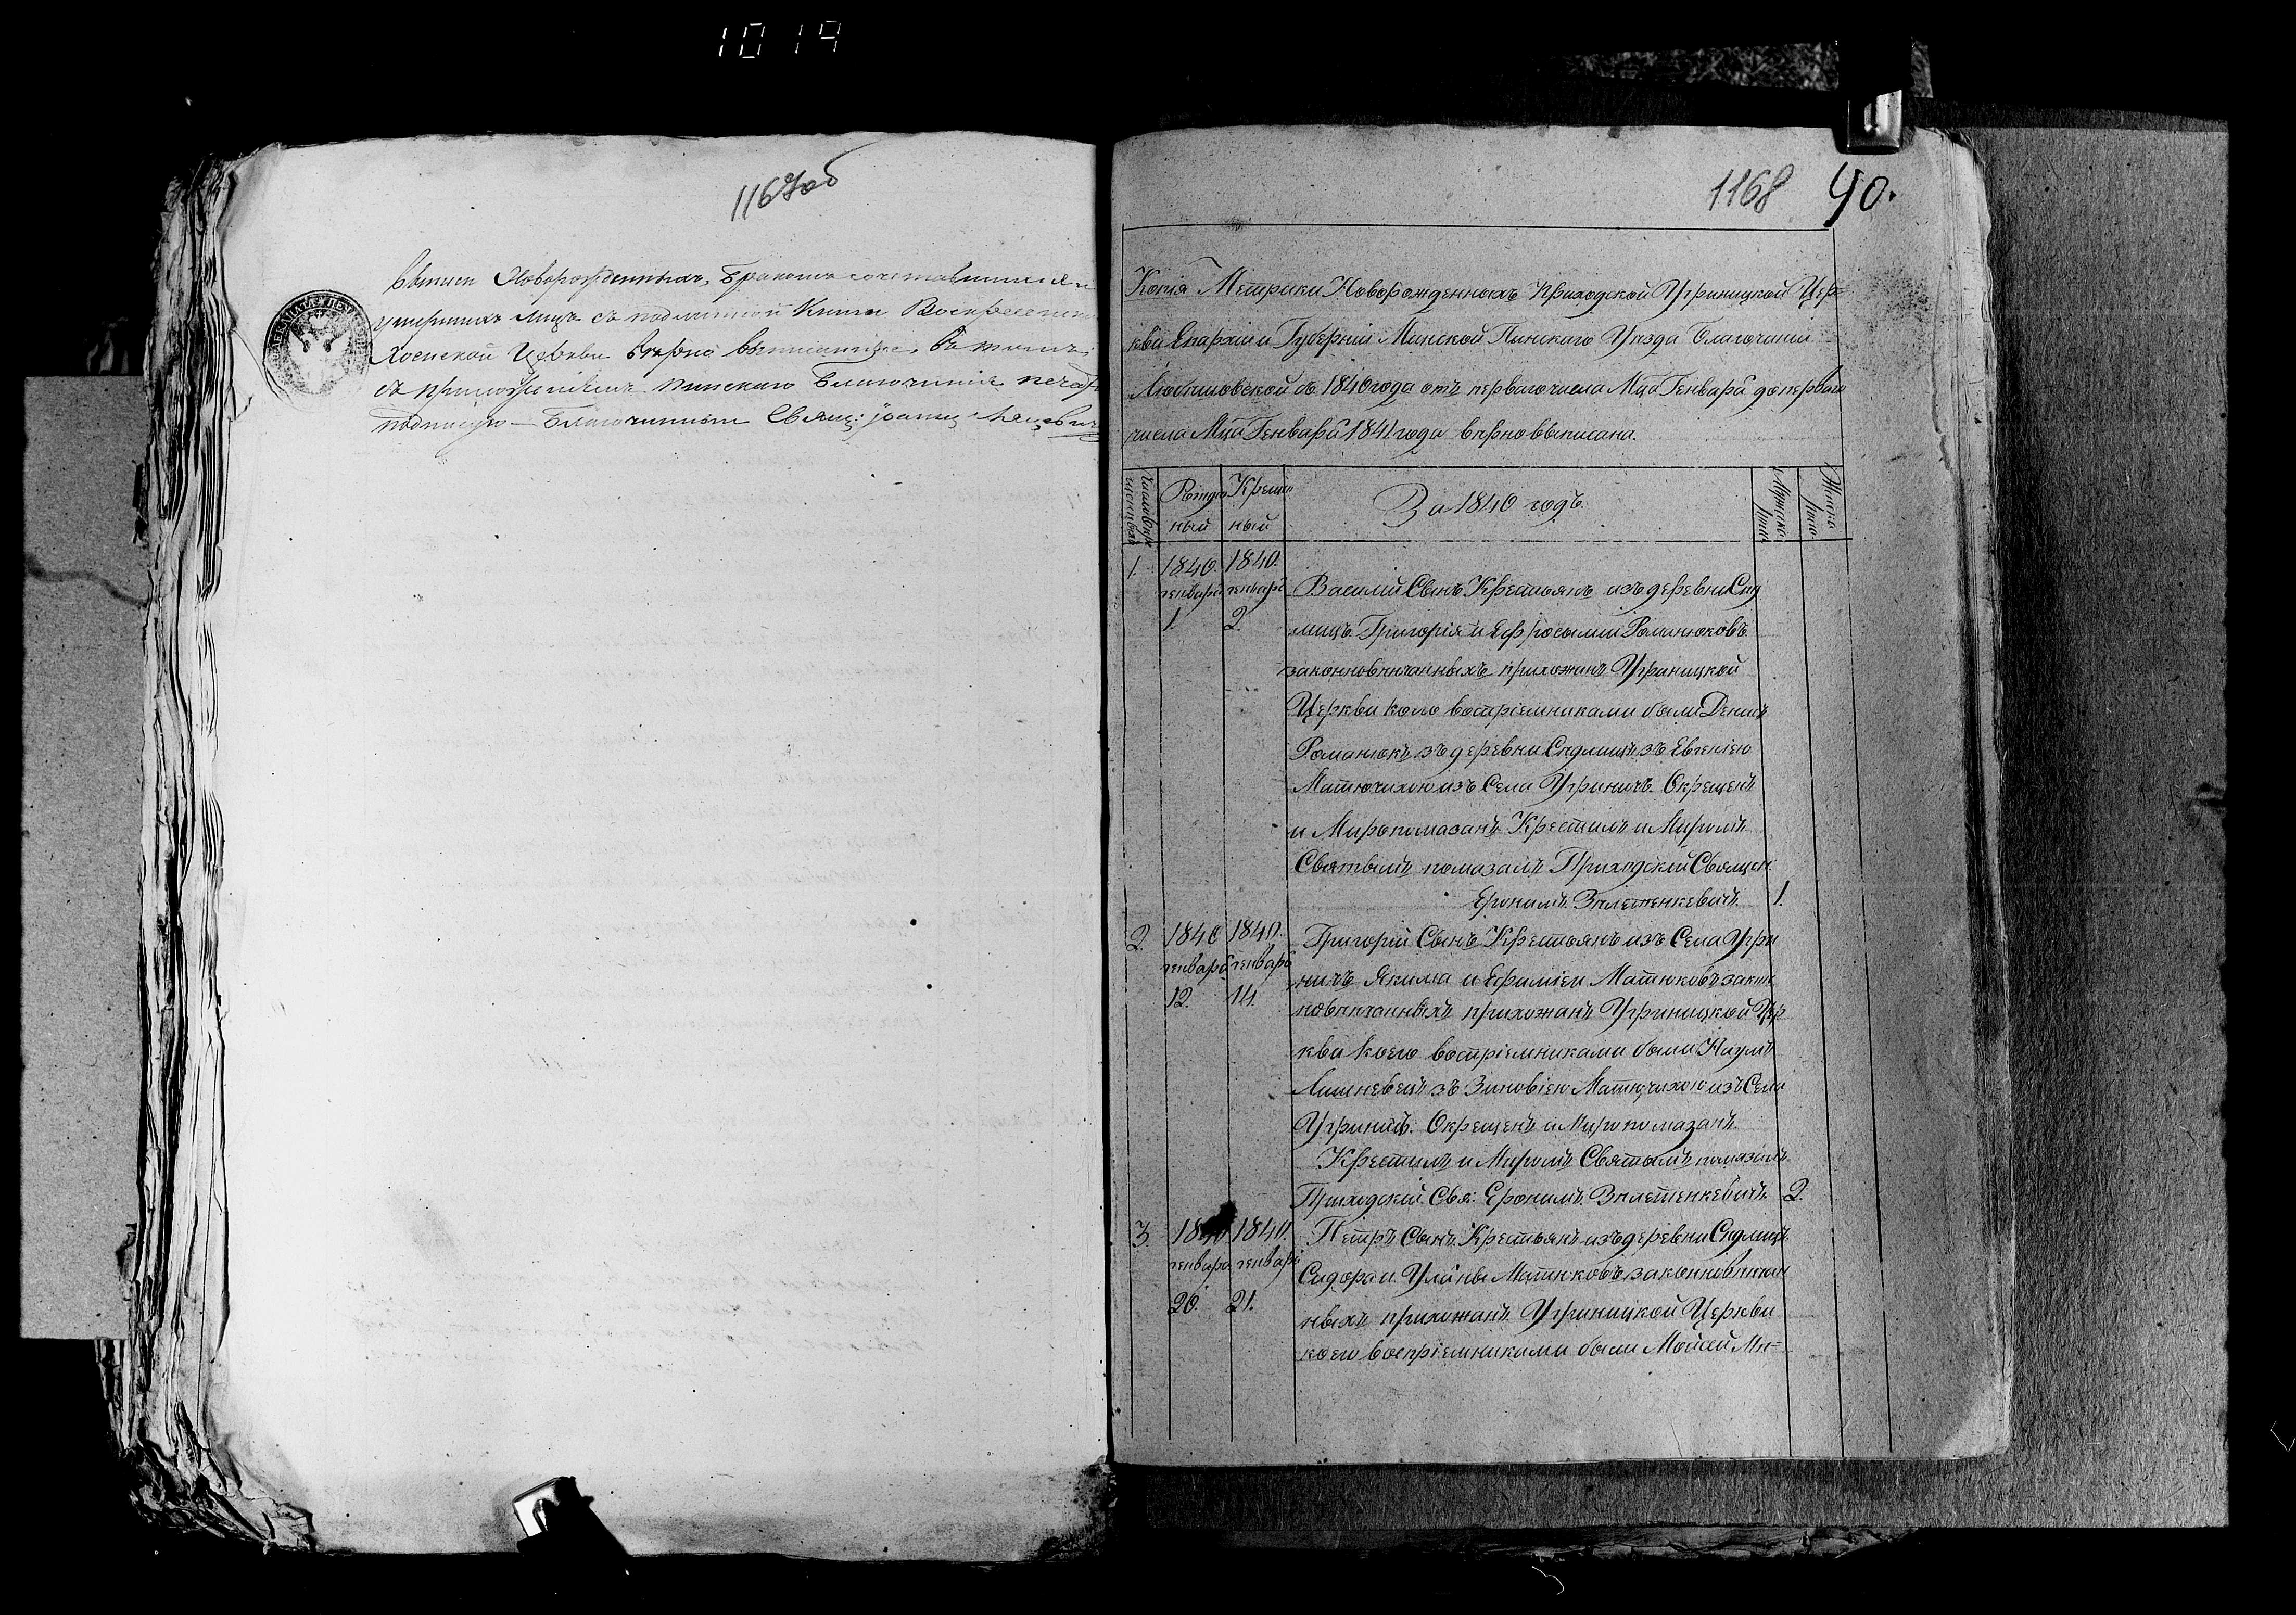 1019
1167об
выписи Новорожденныхъ, бракомъ сочетавшихся и
умершихъ лицъ съ подлинной Книги Воскресенско
Хоенской Церкви вѣрно выписанъ, въ томъ
съ приложеніемъ Пинскаго Благочинія печат
подписую — Благочинный Свящ: Іоаннъ
1168 40.
Копія Метрики Новорожденныхъ Приходской Угриницкой Цер=
кви Епархіи и Губерніи Минской Пинскаго Уѣзда Благочинія
Любешовской съ 1840 года отъ перваго числа Мца Генвара до перваго
числа Мца Генвара 1841 года вѣрно выписана.
Рожде Креще
ный ный
За 1840 годъ.
Мужеска пола
Женска пола
1. 1840. 1840.
генвара генвара
1. 2.
Василій Сынъ Крестьянъ изъ деревни Сѣд
лищъ Григорія и Ефросыніи Романюковъ
законновѣнчанныхъ прихожанъ Угриницкой
Церкви коего востріемниками были Денисъ
Романюкъ зъ деревни Сѣдлищъ зъ Евгеніею
Матючихою изъ Села Угриничъ. Окрещенъ
и Миропомазанъ Крестилъ и Миромъ
Святымъ помазалъ Приходскій Священ.
Еронимъ 1.
2. 1840 1840.
генвара генвара
12. 14.
Григорій Сынъ Крестьянъ изъ Села Угри
ничъ Якима и Ефиміеи Матюковъ закон
новѣнчанныхъ прихожанъ Угриницкой Цер
кви коего востріемниками были Наумъ
зъ Зиновіею Матючихою изъ Села
Угриничъ. Окрещенъ и Миропомазанъ.
Крестилъ и Миромъ Святымъ помазалъ
Приходскій Свя: Еронимъ 2.
3. 1840 1840.
генвара генвара
20. 21.
Петръ Сынъ Крестьянъ изъ деревни Сѣдлищъ
Сидора и Уляны Матюковъ законновѣнчан
ныхъ прихожанъ Угриницкой Церкви
коего воспріемниками были Мойсей Ми=